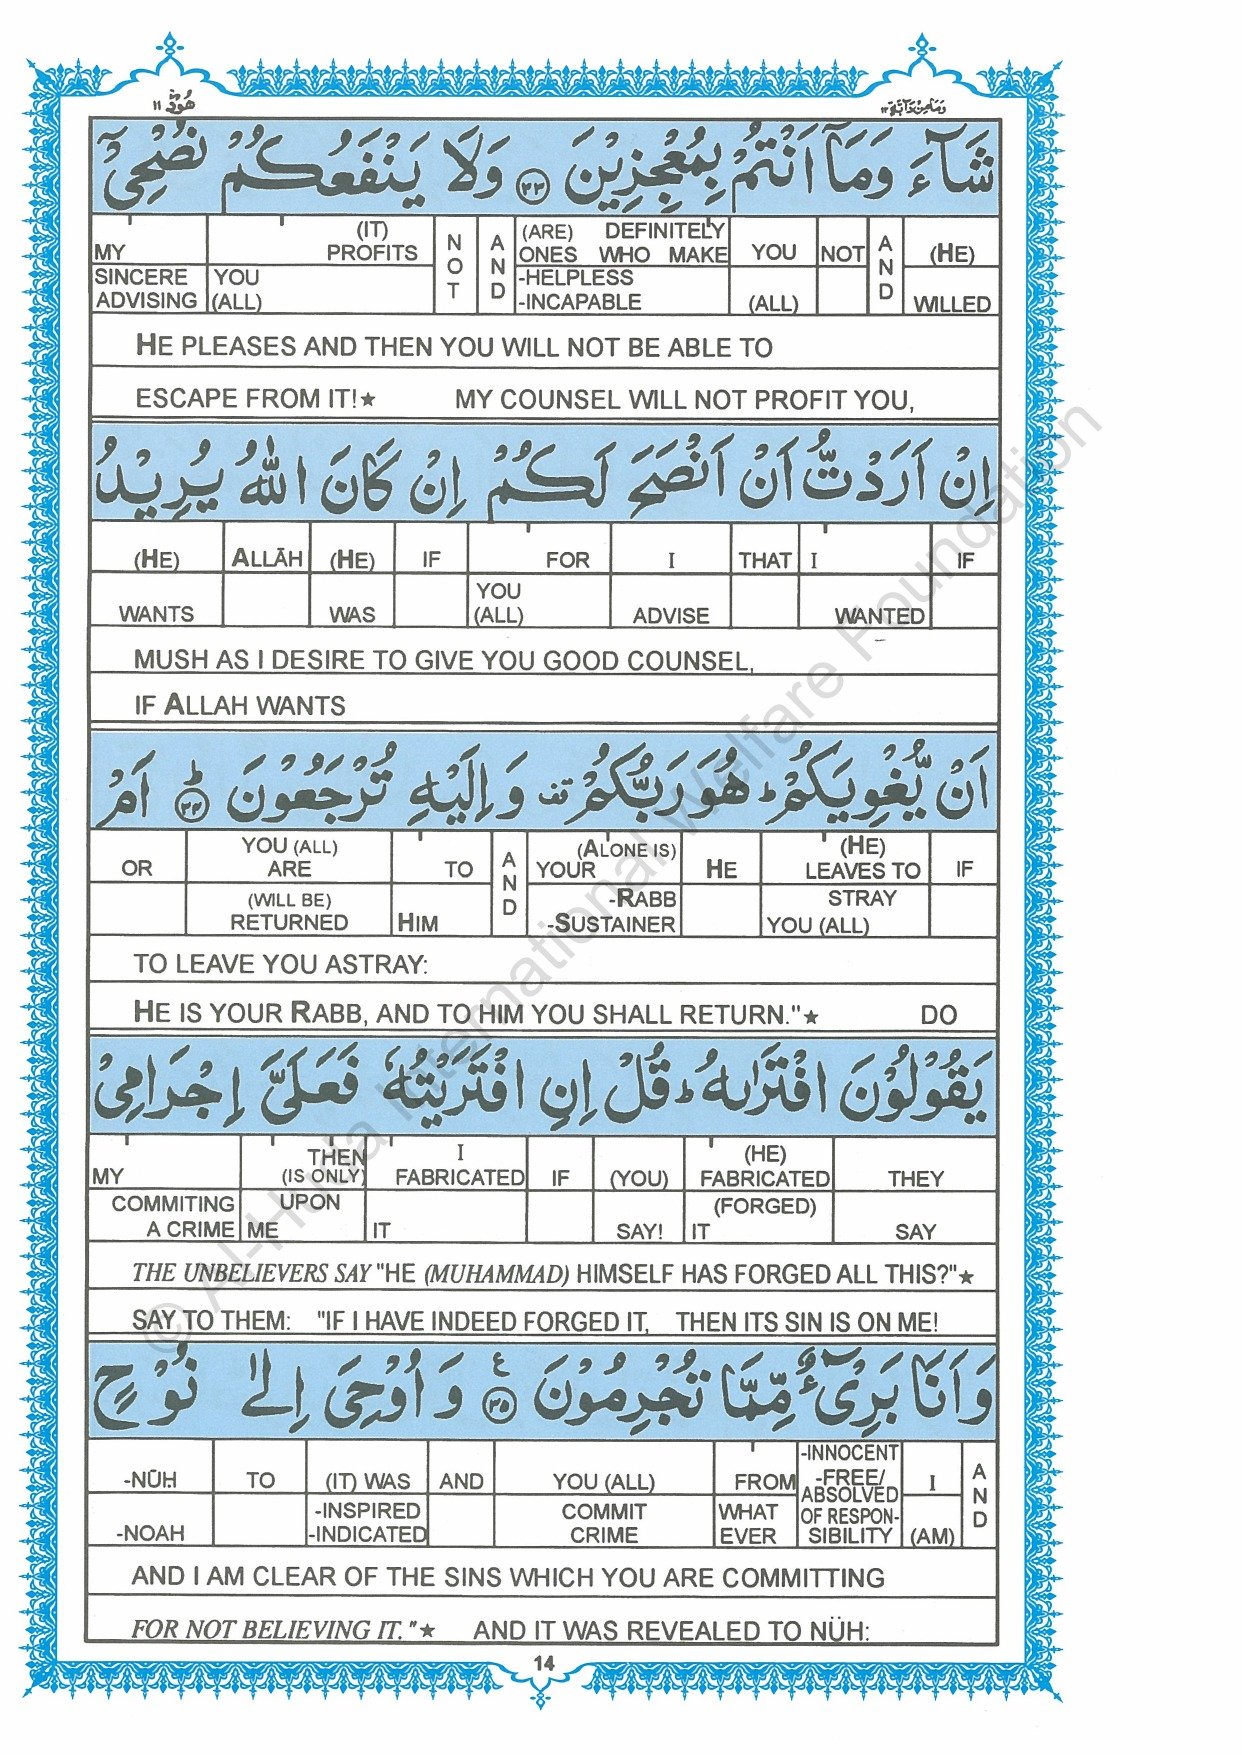 هُوْد ١١
وَمَا مِنْ دَآبَّة ١٢
شَآءَ وَمَآ اَنْتُمْ بِمُعْجِزِيْنَ ﴿٣٣﴾ وَلَا يَنْفَعُكُمْ نُصْحِيْٓ
MY (IT) PROFITS NOT AND (ARE) DEFINITELY ONES WHO MAKE YOU NOT AND (HE)
SINCERE ADVISING YOU (ALL) -HELPLESS -INCAPABLE (ALL) WILLED
HE PLEASES AND THEN YOU WILL NOT BE ABLE TO
ESCAPE FROM IT!★ MY COUNSEL WILL NOT PROFIT YOU,
اِنْ اَرَدْتُّ اَنْ اَنْصَحَ لَكُمْ اِنْ كَانَ اللّٰهُ يُرِيْدُ
(HE) ALLĀH (HE) IF FOR I THAT I IF
WANTS WAS YOU (ALL) ADVISE WANTED
MUSH AS I DESIRE TO GIVE YOU GOOD COUNSEL,
IF ALLAH WANTS
اَنْ يُّغْوِيَكُمْ ؕ هُوَ رَبُّكُمْ قف وَاِلَيْهِ تُرْجَعُوْنَ ﴿٣٤﴾ؕ اَمْ
OR YOU (ALL) ARE TO AND (ALONE IS) YOUR HE (HE) LEAVES TO IF
(WILL BE) RETURNED HIM -RABB -SUSTAINER STRAY YOU (ALL)
TO LEAVE YOU ASTRAY:
HE IS YOUR RABB, AND TO HIM YOU SHALL RETURN."★ DO
يَقُوْلُوْنَ افْتَرٰىهُ ؕ قُلْ اِنِ افْتَرَيْتُهٗ فَعَلَيَّ اِجْرَامِيْ
MY THEN (IS ONLY) I FABRICATED IF (YOU) (HE) FABRICATED THEY
COMMITING A CRIME UPON ME IT SAY! (FORGED) IT SAY
THE UNBELIEVERS SAY "HE (MUHAMMAD) HIMSELF HAS FORGED ALL THIS?"★
SAY TO THEM: "IF I HAVE INDEED FORGED IT, THEN ITS SIN IS ON ME!
وَاَنَا بَرِيْٓءٌ مِّمَّا تُجْرِمُوْنَ ﴿٣٥﴾ ع وَاُوْحِيَ اِلٰى نُوْحٍ
-NŪH TO (IT) WAS AND YOU (ALL) FROM -INNOCENT -FREE/ ABSOLVED OF RESPON- SIBILITY I AND
-NOAH -INSPIRED -INDICATED COMMIT CRIME WHAT EVER (AM)
AND I AM CLEAR OF THE SINS WHICH YOU ARE COMMITTING
FOR NOT BELIEVING IT."★ AND IT WAS REVEALED TO NÜH:
14
© Al-Huda International Welfare Foundation